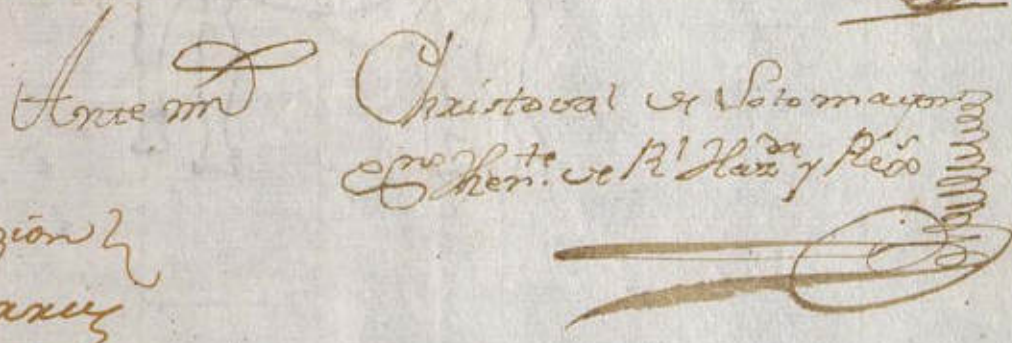 Ante mi Christoval de Sotomayor
Essno. Then.te de Rl. Hazda. y Regos
zion